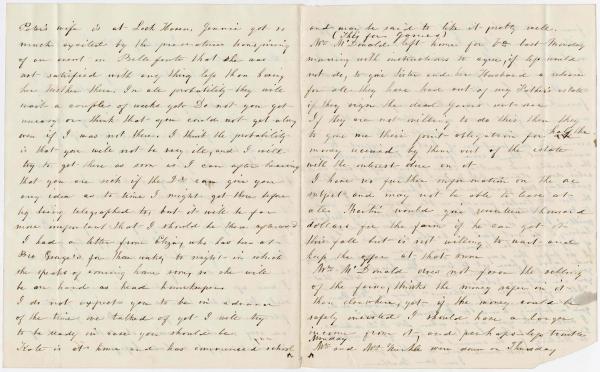 Peter's wife is at Lock Haven. Jennie got so
much excited by the premature transpiring
of an event in Bellefonte that she was
not satisfied with any thing less than having
her Mother there. In all probability they will
wait a couple of weeks yet Do not you get
uneasy or think that you could not get along
even if I was not there. I think the probability
is that you will not be very ill, and I will
try to get there as soon as I can after hearing
that you are sick if the Dr can give you
any idea as to time I might get there before
by being telegraphed to, but it will be far
more important that I should be there afterward
I had a letter from Eliza, who has been at
Bro for three weeks to night in which
she speaks of coming here soon, so she will
be on hand as head housekeeper.
I do not expect you to be in advance
of the time we talked of yet I will try
to be ready in case you should be
Kate is at home and has commenced school
and may be said to like it pretty well.
(This for James)
Wm McDonald left home for last Monday
morning with instructions to agree, if less would
not do, to give Sister and her Husband a release
for all they have had out of my Father's estate
if they signe the deed James
If they are not willing to do this then they
to give me their joint obligations for half the
money received by them out of the estate
with the interest due on it
I have no further information on the
subject and may not be able to leave at
all. Martin would give seventeen thousand
dollars for the farm if he can get it
this fall but is not willing to wait and
keep the offer at that sum
Wm McDonald does not favor the selling
of the farm, thinks the money safer in it
than elsewhere, yet if the money could be
safely invested I should have a larger
income from it, and perhaps less trouble
Mr. and Mrs. were down on Thursday